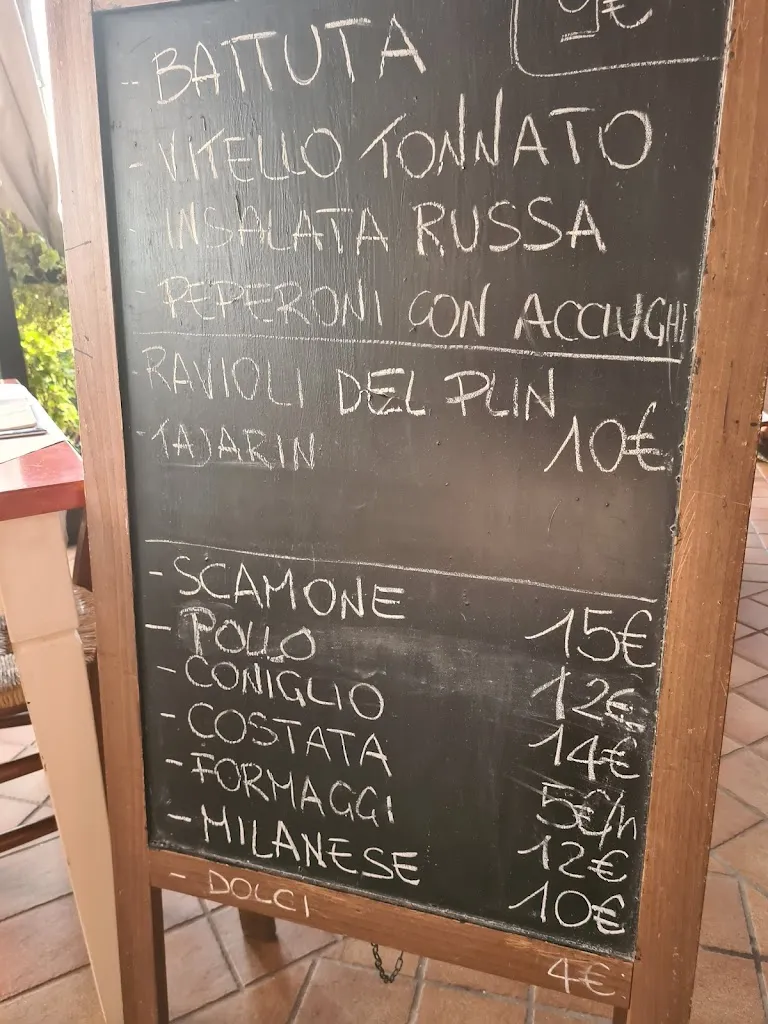 9€
- BATTUTA
- VITELLO TONNATO
- INSALATA RUSSA
- PEPERONI CON ACCIUGHE
- RAVIOLI DEL PLIN
- TAJARIN 10€
- SCAMONE 15€
- POLLO 12€
- CONIGLIO 14€
- COSTATA 5€/h
- FORMAGGI 12€
- MILANESE 10€
- DOLCI 4€